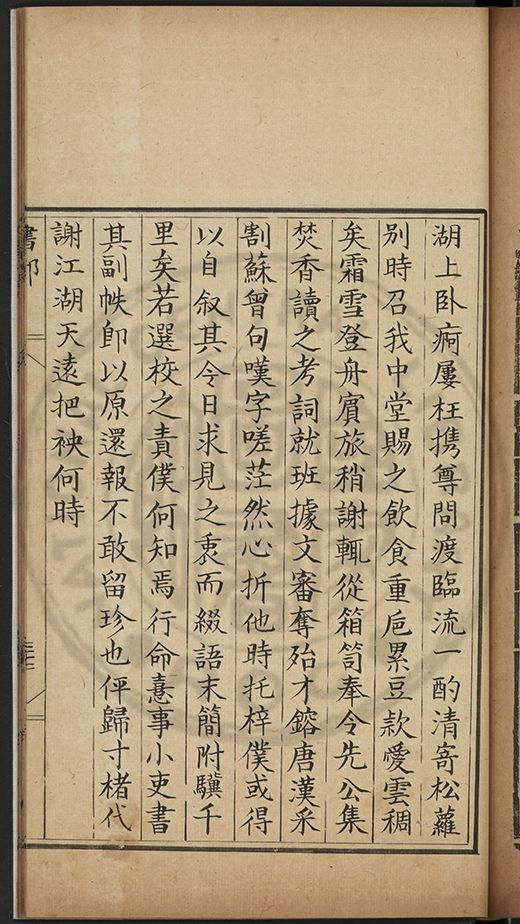 湖上卧痾屢枉携尊問渡臨流一酌清寄松蘿
別時召我中堂賜之飲食重巵累豆款愛雲稠
矣霜雪登舟賓旅稍謝輒從箱笥奉令先公集
焚香讀之考詞就班據文審奪殆才鎔唐漢采
割蘇曾句嘆字嗟茫然心折他時托梓僕或得
以自叙其今日求見之衷而綴語末簡附驥千
里矣若選校之責僕何知焉行命憙事小吏書
其副帙即以原還報不敢留珍也伻歸寸楮代
謝江湖天遠把袂何時